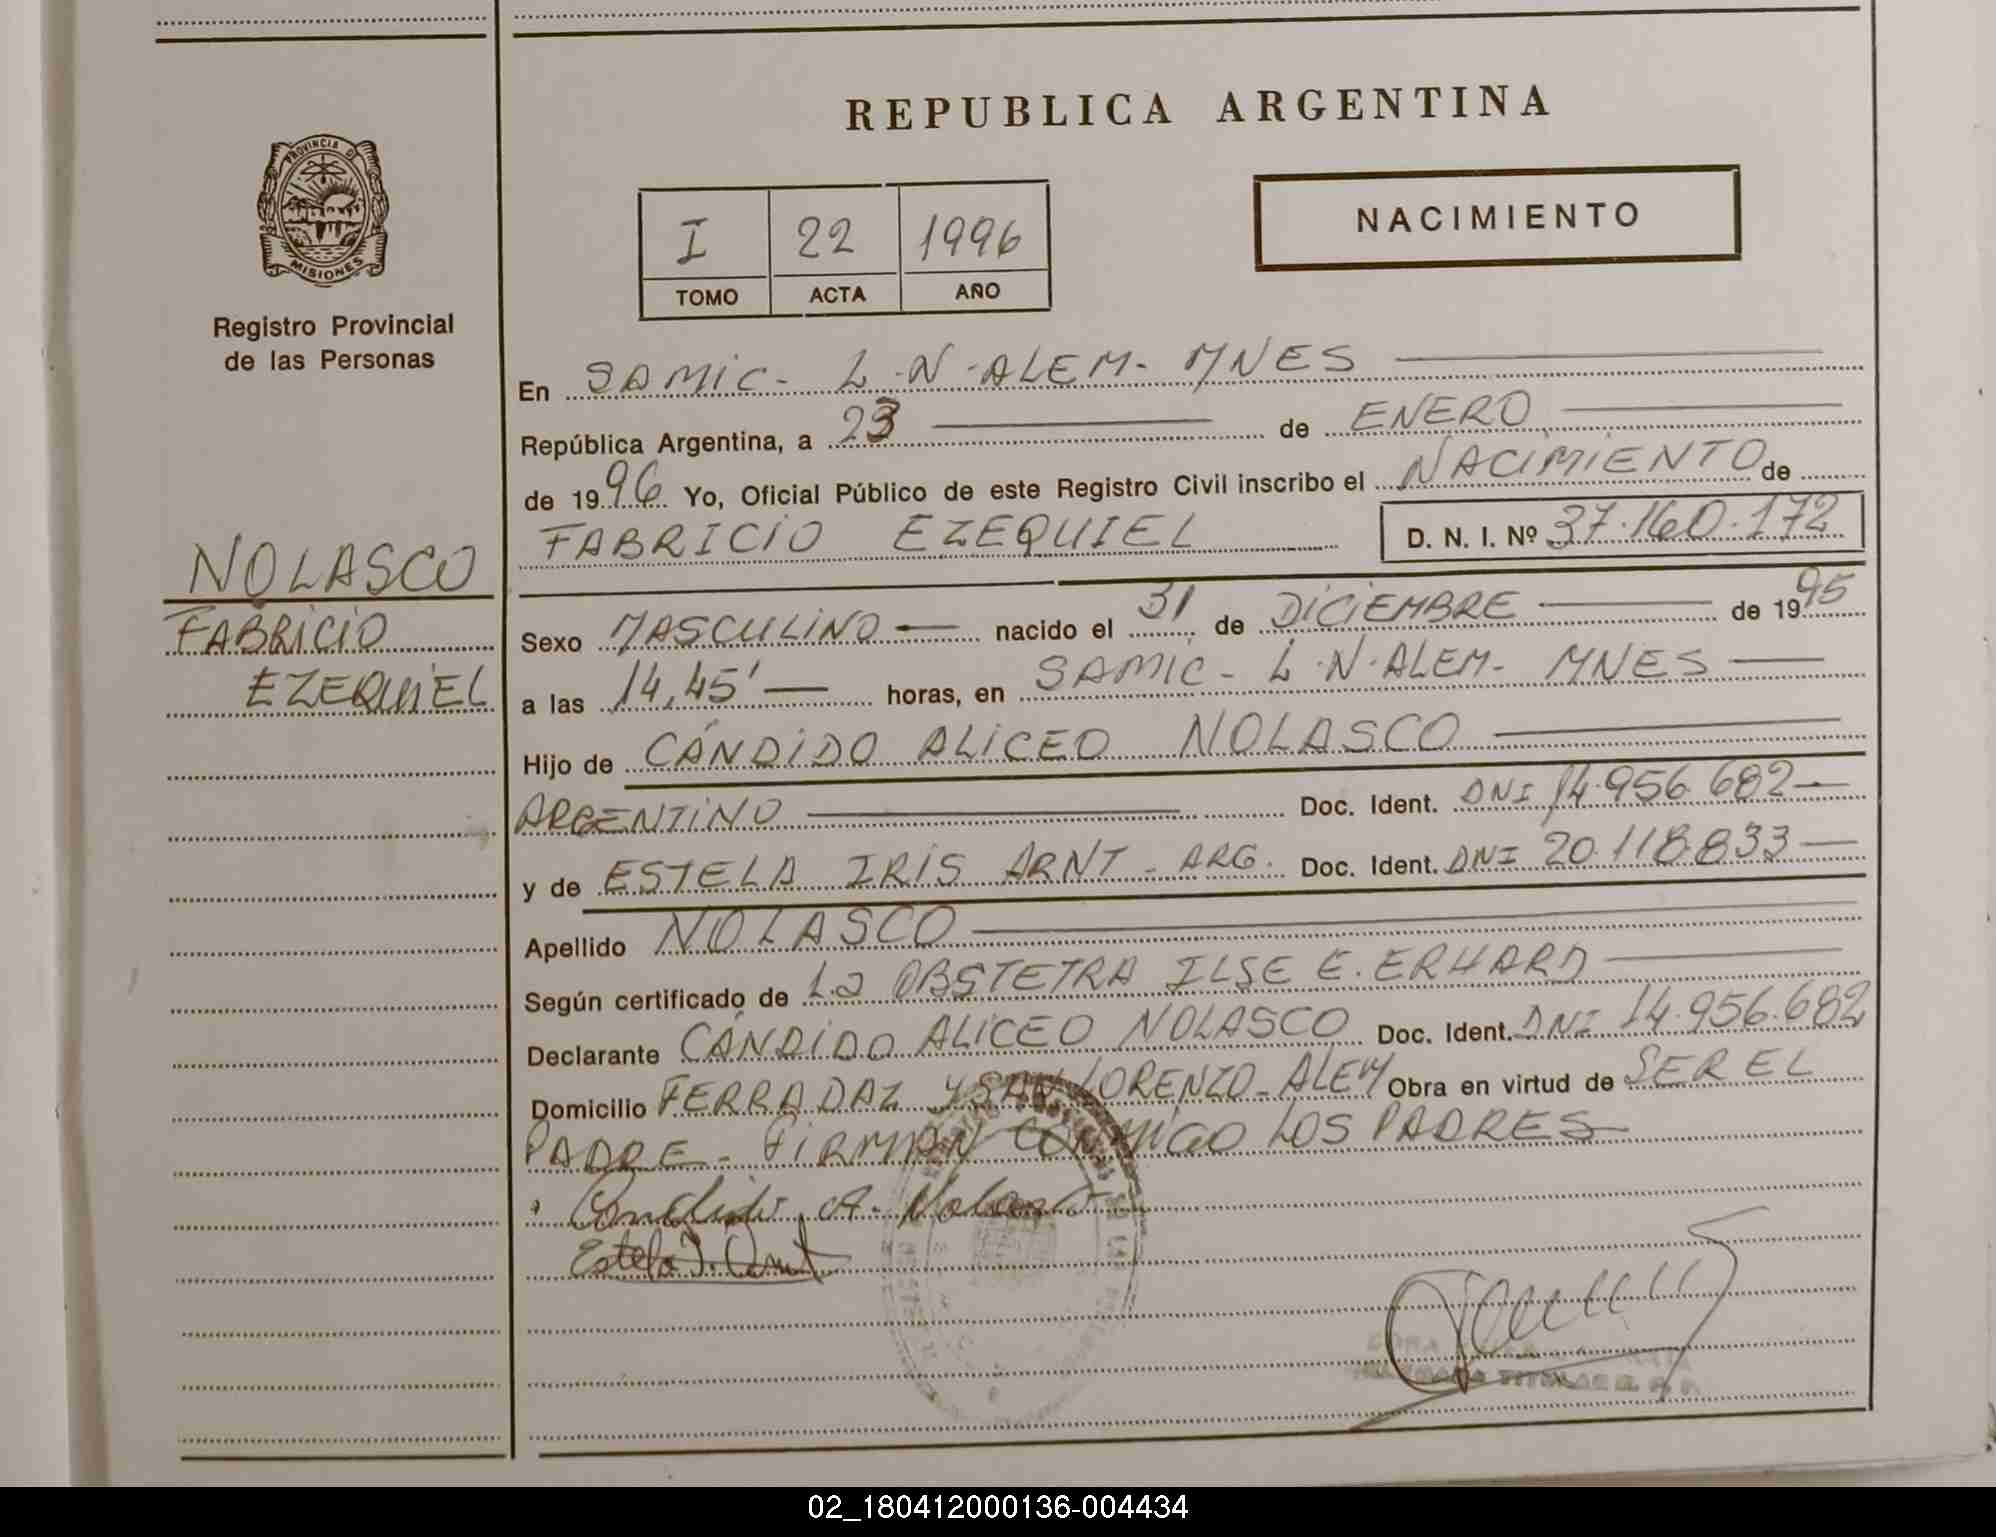 REPUBLICA ARGENTINA
PROVINCIA DE
MISIONES
Registro Provincial
de las Personas
I 22 1996
TOMO ACTA AÑO
NACIMIENTO
En SAMIC - L.N. ALEM - MNES
República Argentina, a 23 de ENERO
de 1996 Yo, Oficial Público de este Registro Civil inscribo el NACIMIENTO de
FABRICIO EZEQUIEL D. N. I. Nº 37.160.172
NOLASCO
FABRICIO
EZEQUIEL
Sexo MASCULINO nacido el 31 de DICIEMBRE de 1995
a las 14,45' horas, en SAMIC - L.N. ALEM - MNES
Hijo de CÁNDIDO ALICEO NOLASCO
ARGENTINO Doc. Ident. DNI 14.956.682
y de ESTELA IRIS ARNT - ARG. Doc. Ident. DNI 20.118.833
Apellido NOLASCO
Según certificado de La OBSTETRA ILSE E. ERHARD
Declarante CÁNDIDO ALICEO NOLASCO Doc. Ident. DNI 14.956.682
Domicilio FERRADAZ Y SAN LORENZO - ALEM Obra en virtud de SER EL
PADRE - FIRMAN CONMIGO LOS PADRES
Candido A. Nolasco
Estela I. Arnt
TITULAR
02_180412000136-004434